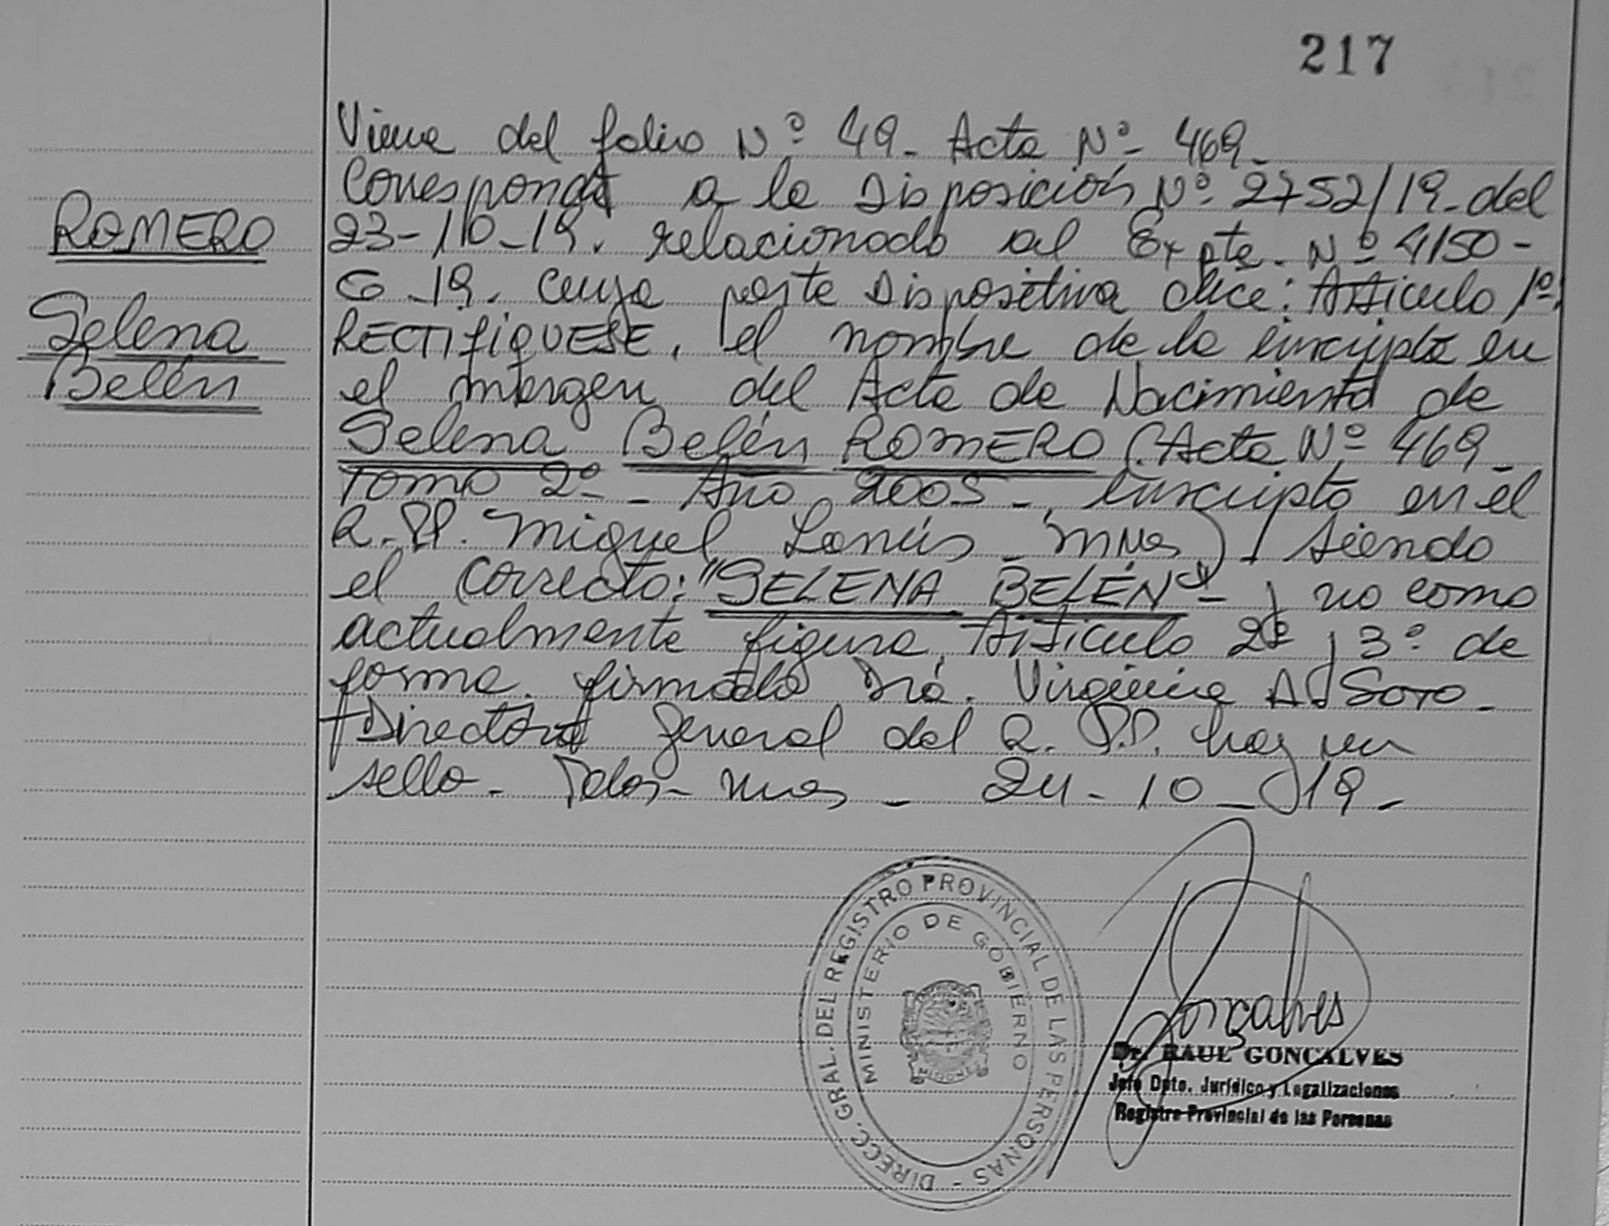 217
Viene del folio Nº 49_ Acta Nº 469_
Corresponde a la Disposición Nº 2752/19_ del
ROMERO
23-10-19. relacionado al Expte. Nº 4150-
G_19. cuya parte Dispositiva dice: Artículo 1º
Selena
RECTIFIQUESE, el nombre de la inscripta en
Belén
el margen del Acta de Nacimiento de
Selena Belén ROMERO (Acta Nº 469_
Tomo 2º_ Año 2005_, inscripta en el
R.PP. Miguel Lanús_Mnes) siendo
el correcto: "SELENA BELÉN"_ y no como
actualmente figura. Artículo 2º y 3º de
forma. firmado Dra. Virginia A. Soto_
Directora General del R.P.P. hay un
sello_ Pdas_ Mnes_ 24-10_19_
DIRECC. GRAL. DEL REGISTRO PROVINCIAL DE LAS PERSONAS -
MINISTERIO DE GOBIERNO
MISIONES
Gonçalves
Dr. RAUL GONCALVES
Jefe Dpto. Jurídico y Legalizaciones
Registro Provincial de las Personas